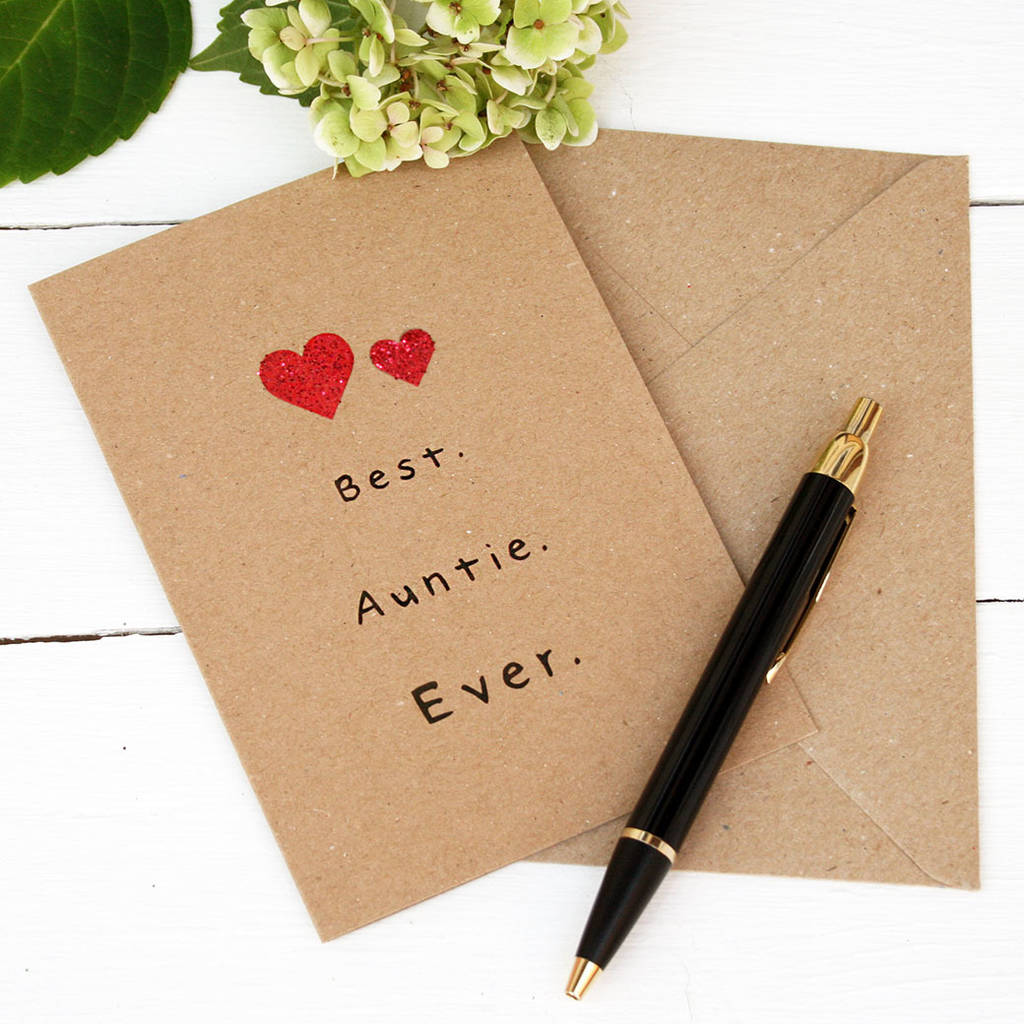 Best.
Auntie.
Ever.